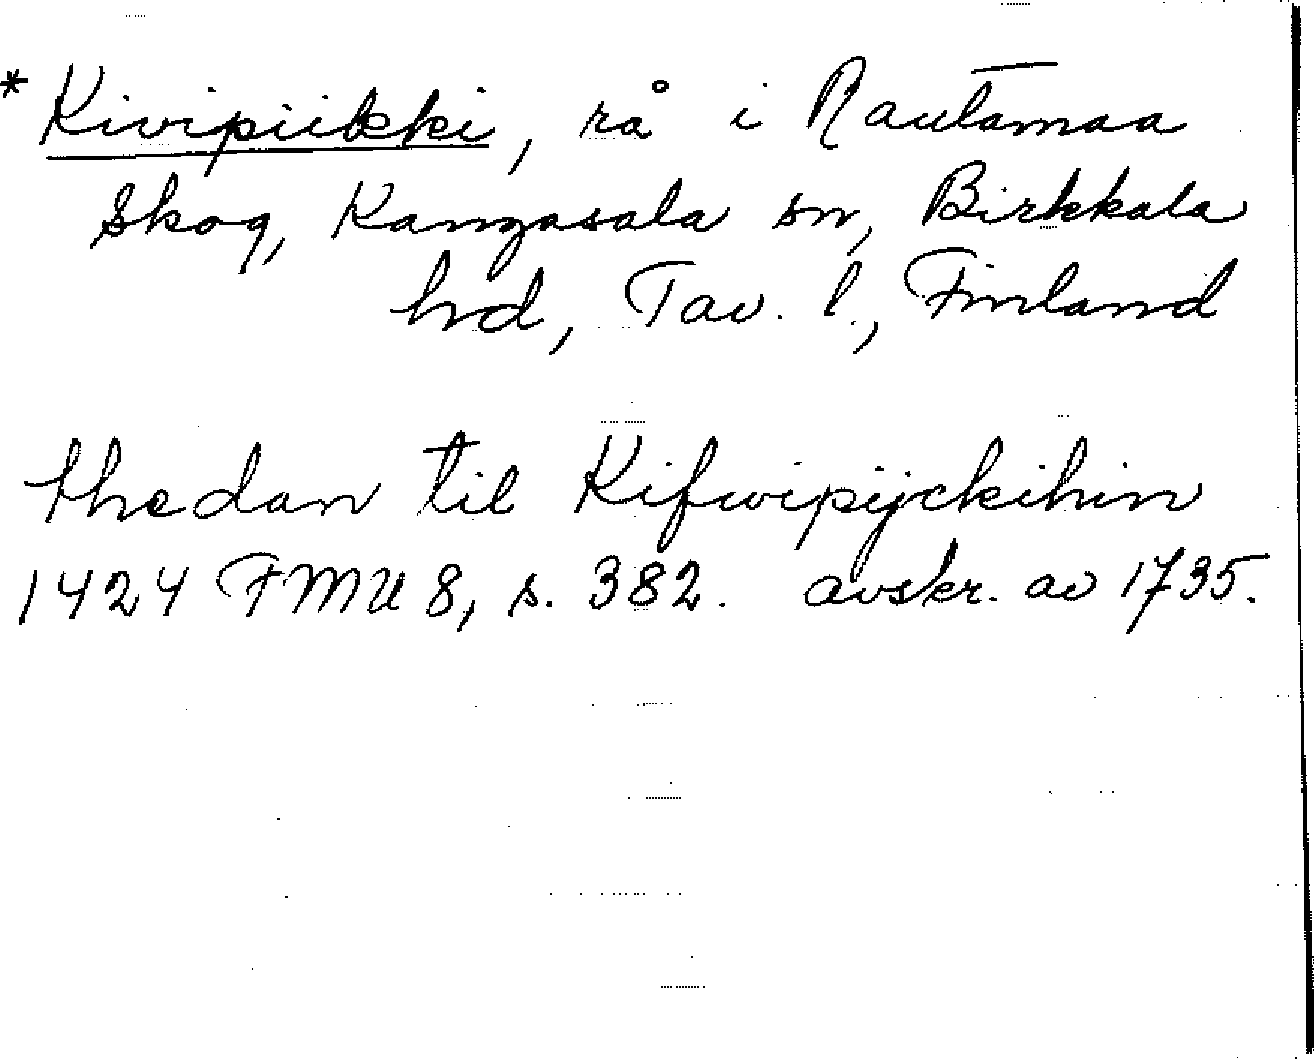 * Kivipiikki, rå i Rautamaa
Skog, Kangasala sn, Birkkala
hd, Tav. l., Finland
thedan til Kifwipijckihin
1424 FMU 8, s. 382. avskr. av 1735.